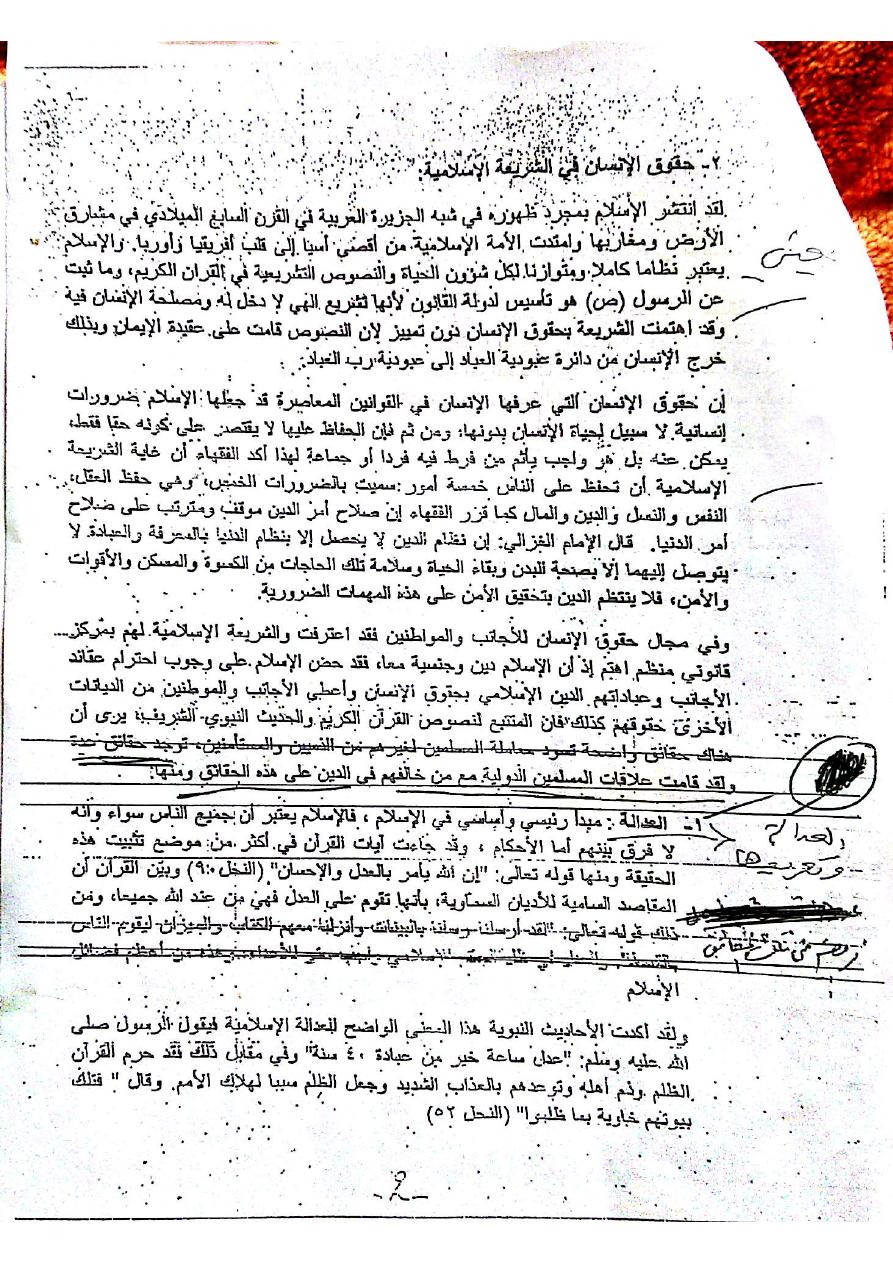 ٢- حقوق الإنسان في الشريعة الإسلامية:
لقد انتشر الإسلام بمجرد ظهوره في شبه الجزيرة العربية في القرن السابع الميلادي في مشارق
الأرض ومغاربها وامتدت الأمة الإسلامية من أقصى آسيا إلى قلب أفريقيا وأوربا. والإسلام
يعتبر نظاما كاملا ومتوازنا لكل شؤون الحياة والنصوص التشريعية في القرآن الكريم، وما ثبت
عن الرسول (ص) هو تأسيس لدولة القانون لأنها تشريع الهي لا دخل له ومصلحة الإنسان فيه
وقد اهتمت الشريعة بحقوق الإنسان دون تمييز لان النصوص قامت على عقيدة الإيمان وبذلك
خرج الإنسان من دائرة عبودية العباد إلى عبودية رب العباد.
إن حقوق الإنسان التي عرفها الإنسان في القوانين المعاصرة قد جعلها الإسلام بضرورات
إنسانية لا سبيل لحياة الإنسان بدونها، ومن ثم فإن الحفاظ عليها لا يقتصر على كونه حقا فقط،
يمكن عنه بل هو واجب يأثم من فرط فيه فردا أو جماعة لهذا أكد الفقهاء أن غاية الشريعة
الإسلامية أن تحفظ على الناس خمسة أمور سميت بالضرورات الخمس، وهي حفظ العقل،
النفس والنسل والدين والمال كما قرر الفقهاء إن صلاح أمر الدين موقف ومترتب على صلاح
أمر الدنيا. قال الإمام الغزالي: إن نظام الدين لا يحصل إلا بنظام الدنيا بالمعرفة والعبادة لا
يتوصل إليهما إلا بصحة البدن وبقاء الحياة وسلامة تلك الحاجات من الكسوة والمسكن والأقوات
والأمن، فلا ينتظم الدين بتحقيق الأمن على هذه المهمات الضرورية.
وفي مجال حقوق الإنسان للأجانب والمواطنين فقد اعترفت والشريعة الإسلامية لهم بمركز
قانوني منظم اهتم إذ أن الإسلام دين وجنسية معا، فقد حض الإسلام على وجوب احترام عقائد
الأجانب وعباداتهم الدين الإسلامي بحقوق الإنسان وأعطي الأجانب والموطنين من الديانات
الأخرى حقوقهم كذلك فان المتتبع لنصوص القرآن الكريم والحديث النبوي الشريف، يرى أن
هناك حقائق واضحة تسود معاملة المسلمين لغيرهم من الذميين والمستأمنين، توجد حقائق عدة
ولقد قامت علاقات المسلمين الدولية مع من خالفهم في الدين على هذه الحقائق ومنها:
١- العدالة: مبدأ رئيسي وأساسي في الإسلام ، فالإسلام يعتبر أن جميع الناس سواء وأنه
لا فرق بينهم أما الأحكام ، وقد جاءت آيات القرآن في أكثر من موضع تثبيت هذه
الحقيقة ومنها قوله تعالى: "إن الله يأمر بالعدل والإحسان" (النحل ٩٠) وبين القرآن أن
المقاصد السامية للأديان السماوية، بأنها تقوم على العدل فهي من عند الله جميعا، ومن
ذلك قوله تعالى: "لقد أرسلنا رسلنا بالبينات وأنزلنا معهم الكتاب والميزان ليقوم الناس
بالقسط" والعدل في ظل الإسلامي واجب حتى للأعداء، وهذه من أعظم فضائل
الإسلام
ولقد أكدت الأحاديث النبوية هذا المعنى الواضح للعدالة الإسلامية فيقول الرسول صلى
الله عليه وسلم: "عدل ساعة خير من عبادة ٤٠ سنة" وفي مقابل ذلك فقد حرم القرآن
الظلم وذم أهله وتوعدهم بالعذاب الشديد وجعل الظلم سببا لهلاك الأمم. وقال " فتلك
بيوتهم خاوية بما ظلموا" (النحل ٥٢)
العدالة
-2-